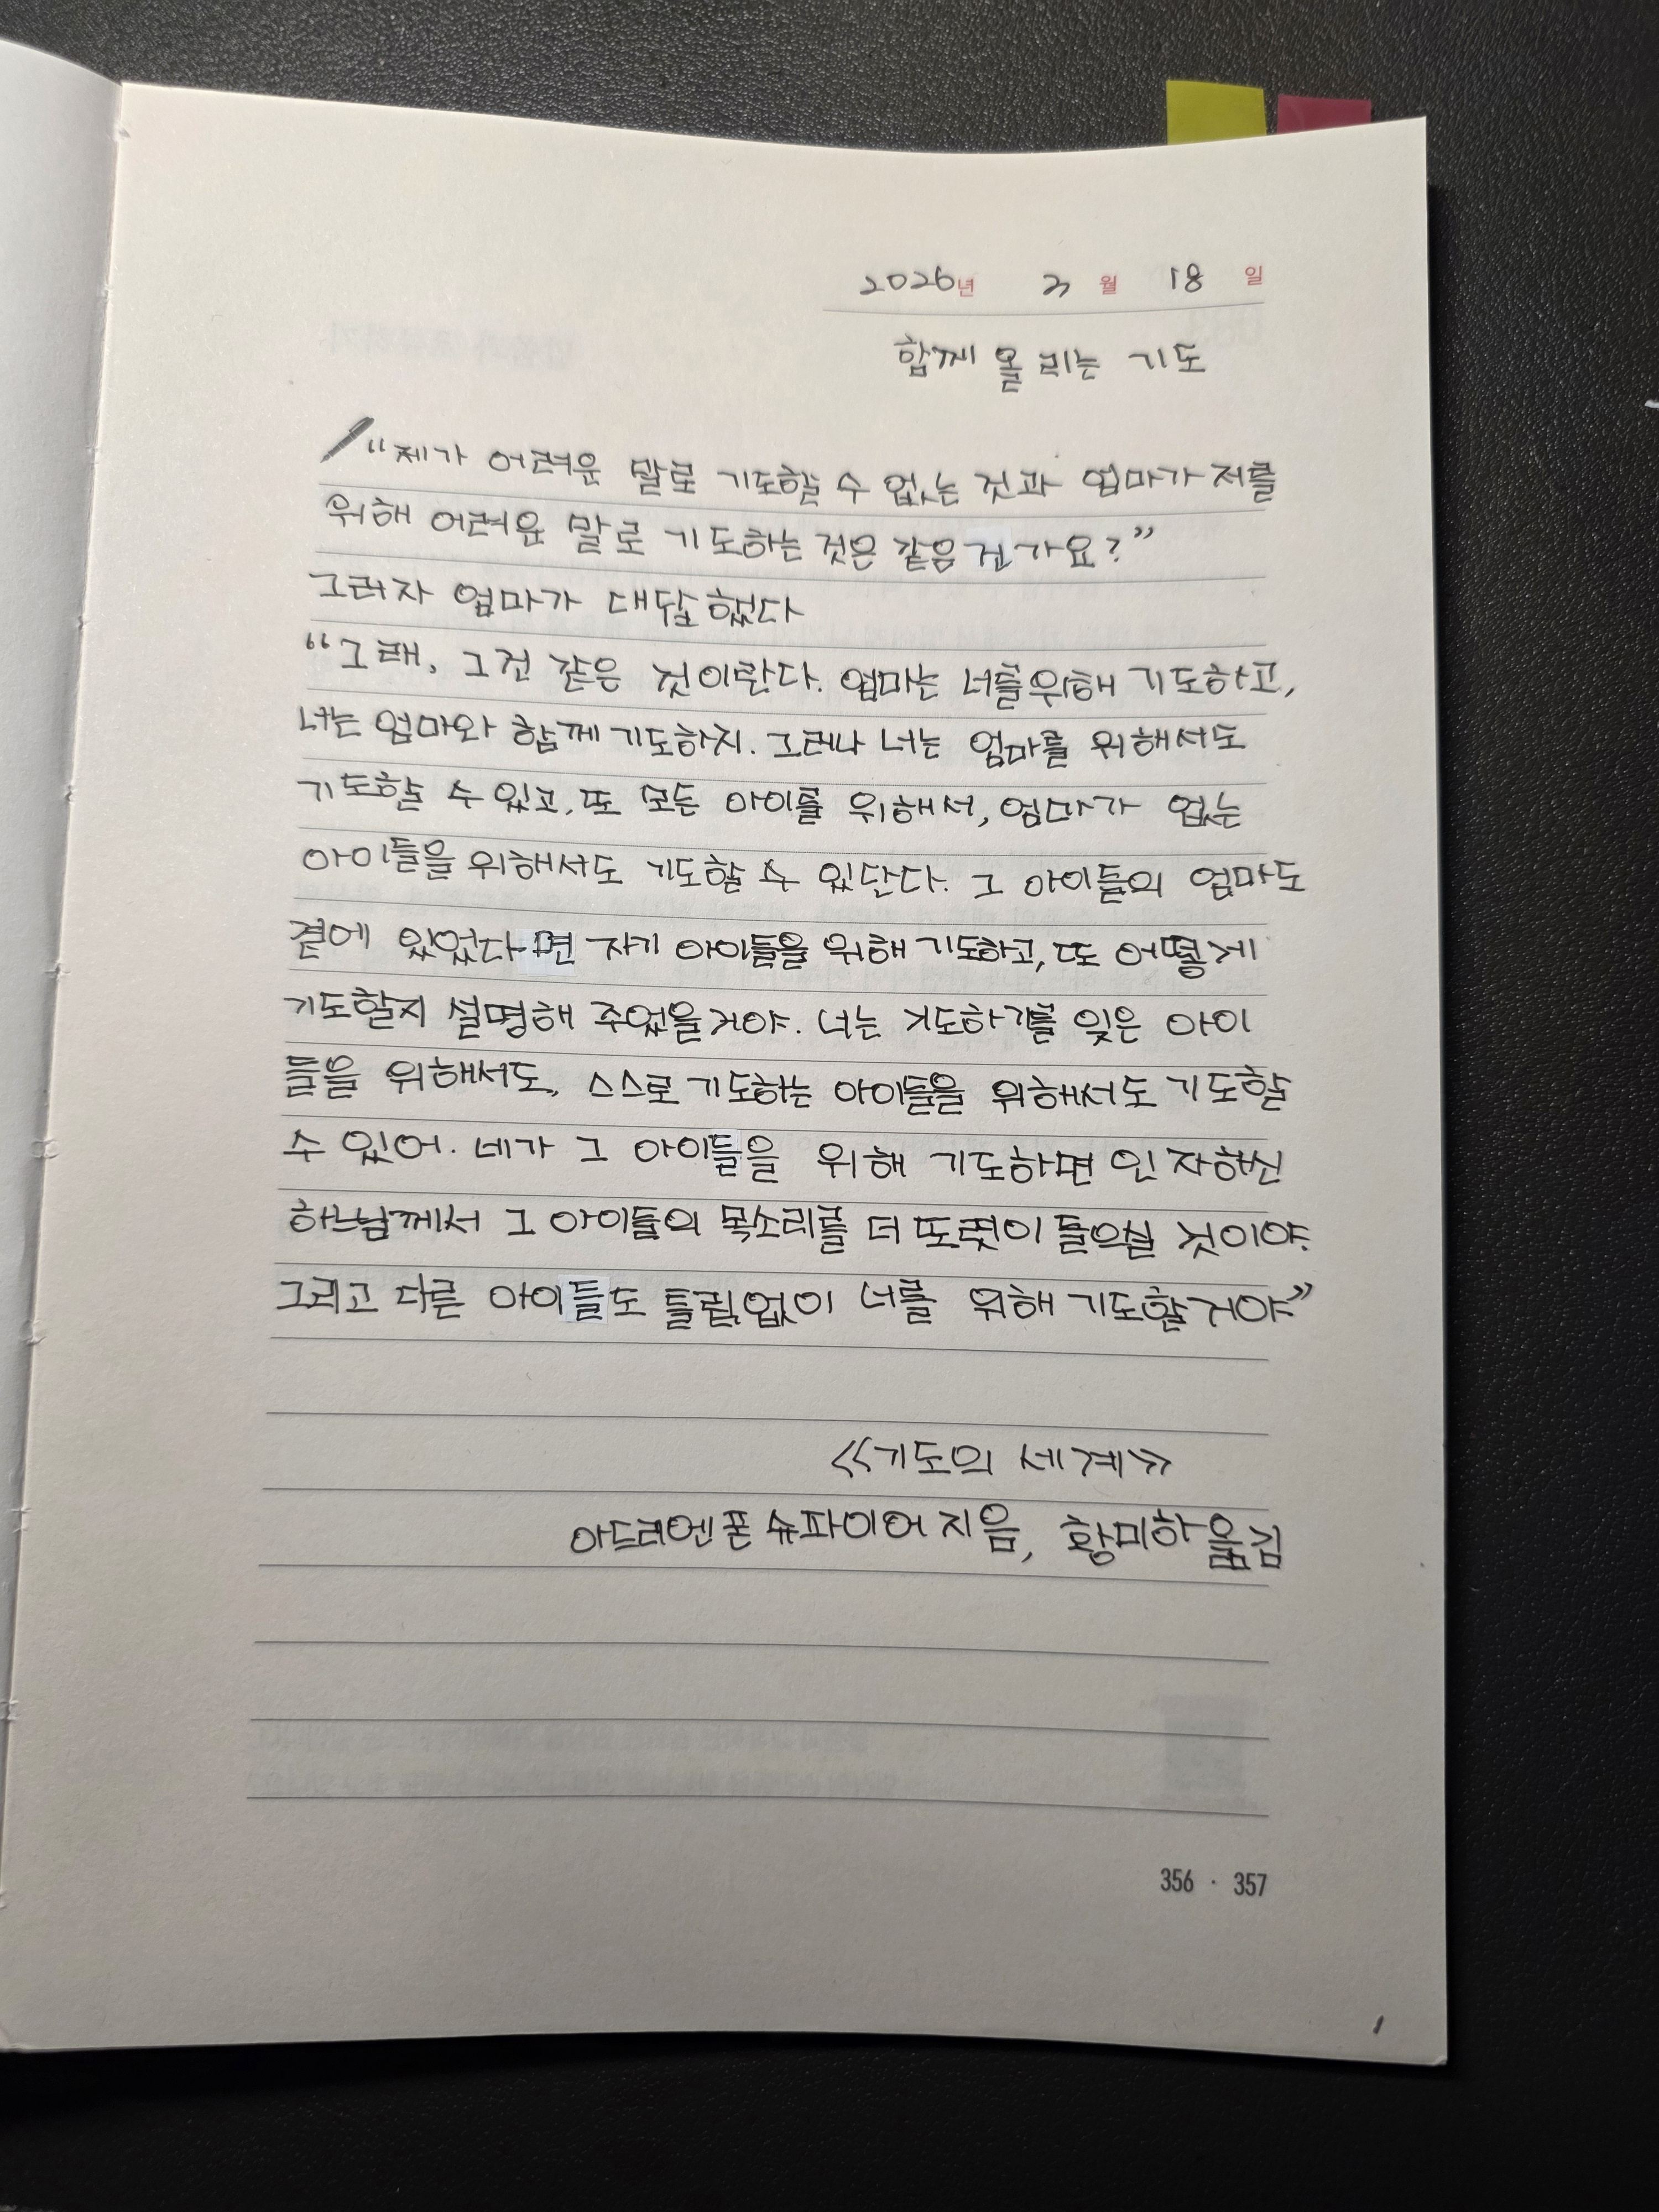 2026년 2월 18일
함께 올리는 기도
“제가 어려운 말로 기도할 수 없는 것과 엄마가 저를
위해 어려운 말로 기도하는 것은 같은 건가요?”
그러자 엄마가 대답했다
“그래, 그건 같은 것이란다. 엄마는 너를 위해 기도하고,
너는 엄마와 함께 기도하지. 그러나 너는 엄마를 위해서도
기도할 수 있고, 또 모든 아이를 위해서, 엄마가 없는
아이들을 위해서도 기도할 수 있단다. 그 아이들의 엄마도
곁에 있었다면 자기 아이들을 위해 기도하고, 또 어떻게
기도할지 설명해 주었을거야. 너는 기도하기를 잊은 아이
들을 위해서도, 스스로 기도하는 아이들을 위해서도 기도할
수 있어. 네가 그 아이들을 위해 기도하면 인자하신
하느님께서 그 아이들의 목소리를 더 또렷이 들으실 것이야.
그리고 다른 아이들도 틀림없이 너를 위해 기도할거야”
《기도의 세계》
아드리엔 폰 슈파이어 지음, 황미하 옮김
356 · 357